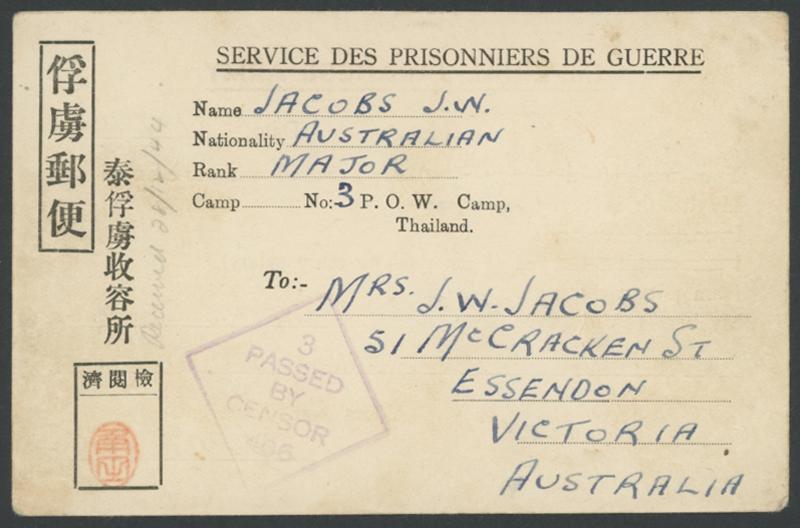 SERVICE DES PRISONNIERS DE GUERRE
俘虜郵便
泰俘虜收容所
Received 28/12/44
Name JACOBS J.W.
Nationality AUSTRALIAN
Rank MAJOR
Camp No: 3 P. O. W. Camp,
Thailand.
To:- MRS. J.W. JACOBS
51 McCRACKEN ST
ESSENDON
VICTORIA
AUSTRALIA
3
PASSED
BY
CENSOR
檢閱濟